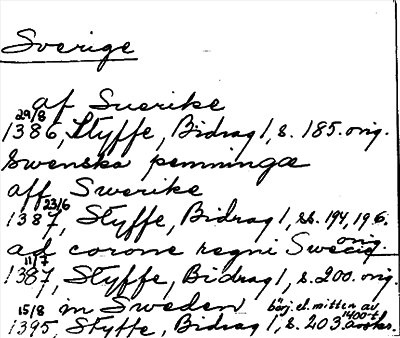 Sverige
af Suerike
29/8
1386, Styffe, Bidrag 1, s. 185. orig.
Swenska penningæ
aff Swerike
23/6
1387, Styffe, Bidrag 1, ss. 194, 196.
orig.
ad corone regni Swecie
11/7
1387, Styffe, Bidrag 1, s. 200. orig.
15/8 in Sweden börj. el. mitten av
1400-t.
1395, Styffe, Bidrag 1, s. 203.